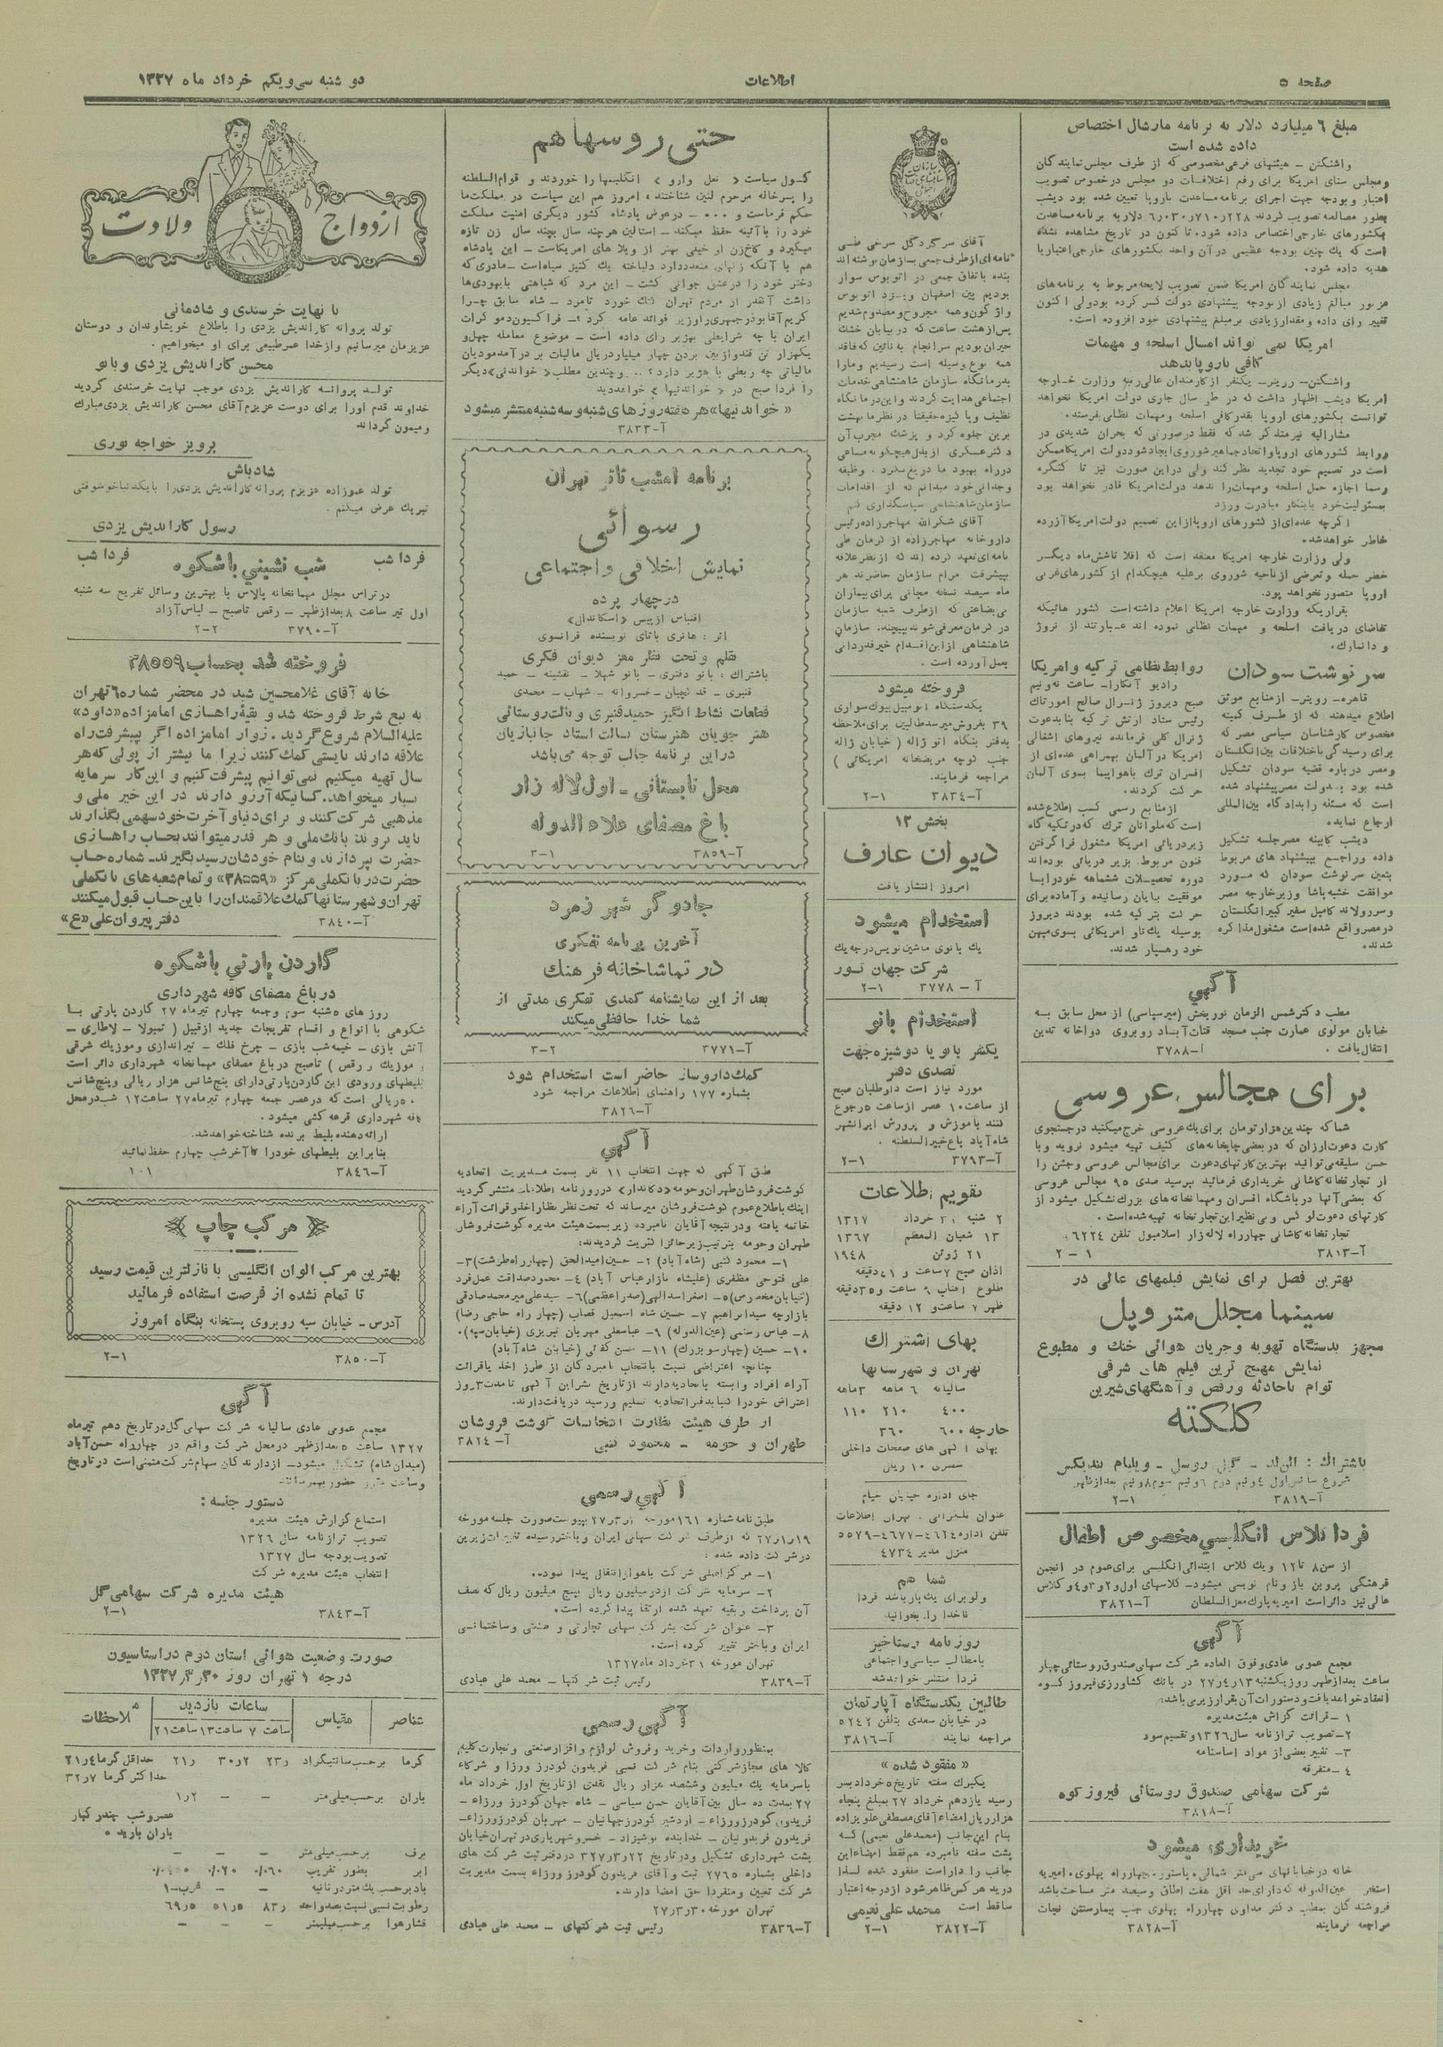 صفحه ۵
اطلاعات
دوشنبه سی‌ویکم خرداد ماه ۱۳۲۷
مبلغ ۶ میلیارد دلار به برنامه مارشال اختصاص
داده شده است
واشنگتن - هیئتهای فرعی مخصوصی که از طرف مجلس نمایندگان
ومجلس سنای امریکا برای رفع اختلافات دو مجلس درخصوص تصویب
اعتبار وبودجه جهت اجرای برنامه مساعدت باروپا تعیین شده بود دیشب
است که یک چنین بودجه عظیمی در آن واحد بکشورهای خارجی اعتبار یا
هدیه داده شود.
مجلس نمایندگان امریکا ضمن تصویب لایحه مربوط به برنامه‌های
مزبور مبالغ زیادی از بودجه پیشنهادی دولت کسر کرده بود ولی اکنون
تغییر رای داده و مقدار زیادی بر مبلغ پیشنهادی خود افزوده است.
امریکا نمی تواند امسال اسلحه و مهمات
کافی باروپا بدهد
امریکا دیشب اظهار داشت که در طی سال جاری دولت امریکا نخواهد
توانست بکشورهای اروپا بقدر کافی اسلحه و مهمات نظامی بفرستد.
رسما اجازه حمل اسلحه ومهمات را ندهد دولت امریکا قادر نخواهد بود
اگرچه عده‌ای از کشورهای اروپا از این تصمیم دولت امریکا آزرده
خاطر خواهد شد.
ولی وزارت خارجه امریکا معتقد است که اقلا تا شش ماه دیگر
خطر حمله و تعرضی از ناحیه شوروی بر علیه هیچکدام از کشورهای غربی
اروپا متصور نخواهد بود.
بقراریکه وزارت خارجه امریکا اعلام داشته است کشور هائیکه
تقاضای دریافت اسلحه و مهمات نظامی نموده اند عبارتند از نروژ
و دانمارک.
سرنوشت سودان
قاهره - رویتر - از منابع موثق
اطلاع میدهند که از طرف کمیته
مخصوص کارشناسان سیاسی مصر که
برای رسیدگی باختلافات بین انگلستان
ومصر درباره قضیه سودان تشکیل
شده بود بدولت مصر پیشنهاد شده
است که مسئله را بدادگاه بین‌المللی
ارجاع نماید.
دیشب کابینه مصر جلسه تشکیل
داده وراجع به پیشنهاد های مربوط
موافقت خشبه پاشا وزیر خارجه مصر
در مصر واقع شده است مشغول مذاکره
شدند.
روابط نظامی ترکیه وامریکا
صبح دیروز ژنرال صالح امورتاک
رئیس ستاد ارتش ترکیه بنا بدعوت
ژنرال کلی فرمانده نیروهای اشغالی
امریکا در آلمان بهمراهی عده‌ای از
افسران ترک با هواپیما بسوی آلمان
حرکت کردند.
از منابع رسمی کسب اطلاع شده
است که ملوانان ترک که در تکیه گاه
زیردریائی امریکا مشغول فرا گرفتن
دوره تحصیلات ششماهه خود را با
موفقیت بپایان رسانیده و آماده برای
حرکت بترکیه شده بودند دیروز
بوسیله یک ناو امریکائی بسوی میهن
خود رهسپار شدند.
آگهی
مطب دکتر شمس الزمان نوربخش (میرسپاسی) از محل سابق به
انتقال یافت.
آ-۳۷۸۸
برای مجالس عروسی
شما که چندین هزار تومان برای یک عروسی خرج میکنید در جستجوی
کارت دعوت ارزان که در بعضی چاپخانه‌های کثیف تهیه میشود نروید و با
حسن سلیقه می‌توانید بهترین کارتهای دعوت برای مجالس عروسی وجشن را
از تجارتخانه کاشانی خریداری فرمائید بپرسید صدی ۹۵ مجالس عروسی
که بعضی آنها در باشگاه افسران ومهمانخانه‌های بزرگ تشکیل میشود از
کارتهای دعوت لوکس و بی نظیر این تجارتخانه تهیه شده است.
تجارتخانه کاشانی چهارراه لاله زار اسلامبول تلفن ۶۲۲۴
آ-۳۸۱۳ ۱-۲
بهترین فصل برای نمایش فیلمهای عالی در
سینما مجلل متروپل
مجهز بدستگاه تهویه و جریان هوائی خنک و مطبوع
نمایش مهیج ترین فیلم های شرقی
توام باحادثه ورقص وآهنگهای شیرین
کلکته
باشتراک: آلن لد - گیل روسل - ویلیام بندیکس
آ-۳۸۱۹ ۱-۲
فردا کلاس انگلیسی مخصوص اطفال
از سن ۸ تا ۱۲ ویک کلاس ابتدائی انگلیسی برای عموم در انجمن
فرهنگی پروین باز ونام نویسی میشود - کلاسهای اول و۲و۳و۴ وکلاس
عالی نیز دائر است امیریه پارک معزالسلطان آ-۳۸۲۱
آگهی
مجمع عمومی عادی وفوق العاده شرکت سهامی صندوق روستائی چهار
ساعت بعد از ظهر روز یکشنبه ۱۳ر۴ر۲۷ در بانک کشاورزی فیروز کوه
انعقاد خواهد یافت و دستورات آن بقرار زیر می‌باشد:
۱- قرائت گزارش هیئت مدیره
۲- تصویب ترازنامه سال ۱۳۲۶ وتقسیم سود
۳- تغییر بعضی از مواد اساسنامه
۴- متفرقه
شرکت سهامی صندوق روستائی فیروز کوه
آ-۳۸۱۸
خریداری میشود
خانه در خیابانهای می‌متر شمالی، پاستور، چهارراه پهلوی، امیریه
فروشندگان بمطب دکتر مداوی چهارراه پهلوی جنب بیمارستان نجات
مراجعه فرمایند آ-۳۸۲۸
آقای سرگرد گل سرخی طی
نامه‌ای از طرف جمعی بسازمان نوشته‌اند
بنده باتفاق جمعی در اتوبوس سوار
بودیم بین اصفهان ویزد اتوبوس
واژگون وهمه مجروح ومصدوم شدیم
پس از هشت ساعت که در بیابان خشک
حیران بودیم سرانجام به نائین که فاقد
همه نوع وسیله است رسیدیم ومارا
بدرمانگاه سازمان شاهنشاهی خدمات
اجتماعی هدایت کردند واین درمانگاه
نظیف وپاکیزه حقیقتا در نظر ما بهشت
برین جلوه کرد و پزشک مجرب آن
دکتر عسکری از بذل هیچگونه مساعی
در راه بهبود ما دریغ نکرد. وظیفه
وجدانی خود میدانم که از اقدامات
سازمان شاهنشاهی سپاسگذاری کنم
آقای شکرالله مهاجرزاده رئیس
داروخانه مهاجرزاده از کرمان طی
نامه‌ای تعهد کرده اند که از نظر علاقه
بپیشرفت مرام سازمان حاضرند هر
ماه سیصد نسخه مجانی برای بیماران
بی بضاعتی که از طرف شعبه سازمان
در کرمان معرفی شوند بپیچند. سازمان
شاهنشاهی از این اقدام خیر قدردانی
بعمل آورده است.
فروخته میشود
یکدستگاه اتومبیل بیوک سواری
۳۹ بفروش میرسد طالبین برای ملاحظه
بدفتر بنگاه اتو ژاله (خیابان ژاله
جنب کوچه مریضخانه امریکائی)
مراجعه فرمایند.
آ-۳۸۳۴ ۱-۲
بخش ۱۲
دیوان عارف
امروز انتشار یافت
استخدام میشود
یک بانوی ماشین نویس درجه یک
شرکت جهان نور
آ-۳۷۷۸ ۱-۲
استخدام بانو
یکنفر بانو یا دوشیزه جهت
تصدی دفتر
مورد نیاز است داوطلبان صبح
از ساعت ۱۰ عصر از ساعت ۵ رجوع
کنند بآموزش و پرورش ایرانشهر
شاه آباد باغ خبیرالسلطنه.
آ-۳۷۹۳ ۱-۲
تقویم اطلاعات
۲ شنبه ۳۱ خرداد ۱۳۲۷
۱۳ شعبان المعظم ۱۳۶۷
۲۱ ژوئن ۱۹۴۸
ظهر ۷ ساعت و ۱۲ دقیقه
بهای اشتراک
تهران و شهرستانها
سالیانه ۶ ماهه ۳ ماهه
۴۰۰ ۲۱۰ ۱۱۰
خارجه ۶۰۰ ۳۶۰
بهای آگهی های صفحات داخلی
سطری ۱۰ ریال
جای اداره خیابان خیام
عنوان تلگرافی، تهران اطلاعات
تلفن اداره ۴۶۲۴-۴۶۷۷-۵۵۷۹
منزل مدیر ۴۷۳۴
شما هم
ولو برای یکبار باشد فردا
ناخدا را بخوانید
روزنامه رستاخیز
با مطالب سیاسی و اجتماعی
فردا منتشر خواهد شد
طالبین یکدستگاه آپارتمان
در خیابان سعدی بتلفن ۵۲۴۲
مراجعه نمایند آ-۳۸۱۶
«مفقود شده»
یکبرگ سفته تاریخ ۵ خرداد بسر
رسید یازدهم خرداد ۲۷ بمبلغ پنجاه
هزار ریال امضاء آقای مصطفی علویزاده
بنام این جانب (محمد علی نعیمی) که
پشت سفته نامبرده هم فقط امضاء این
جانب را دار است مفقود شده لذا
در ید هر کس ظاهر شود از درجه اعتبار
ساقط است محمد علی نعیمی
آ-۳۸۲۲ ۱-۲
حتی روسها هم
گول سیاست «نعل وارو» انگلیسها را خوردند و قوام السلطنه
را پسرخاله مرحوم لنین شناختند، امروز هم این سیاست در مملکت ما
حکم فرماست و ۰۰۰ - در عوض پادشاه کشور دیگری امنیت مملکت
خود را با آئینه حفظ میکند - استالین هر چند سال بچند سال زن تازه
میگیرد و کاخ زن او خیلی بهتر از ویلا های امریکاست - این پادشاه
هم با آنکه زنهای متعدد دارد دلباخته یک کنیز سیاه است - مادری که
دختر خود را در عشق جوانی کشت - این مرد که شباهتی بابهودیها
داشت آنقدر از مردم تهران کتک خورد تا مرد - شاه سابق چرا
کریم آقا بوذرجمهری را وزیر فوائد عامه کرد؟ - فراکسیون دموکرات
ایران با چه شرایطی بهژیر رای داده است - موضوع معامله چهل و
یکهزار تن قند و از بین بردن چهار میلیارد ریال مالیات بر درآمد مودیان
مالیاتی چه ربطی با هژیر دارد؟ .. و چندین مطلب «خواندنی» دیگر
را فردا صبح در «خواندنیها» خواهید دید
«خواندنیها» هر هفته روزهای شنبه و سه شنبه منتشر میشود
آ-۳۸۳۳
برنامه امشب تاتر تهران
رسوائی
نمایش اخلاقی و اجتماعی
در چهار پرده
اقتباس از پیس «اسکاندال»
اثر: هانری باتای نویسنده فرانسوی
بقلم و تحت نظر معز دیوان فکری
باشتراک: بانو دفتری - بانو شهلا - نقشینه - حمید
قنبری - قدکچیان - خسروانه - شهاب - محمدی
قطعات نشاط انگیز حمید قنبری و بالت روستائی
هنرجویان هنرستان بالت استاد جانبازیان
در این برنامه جالب توجه می‌باشد
محل تابستانی - اول لاله زار
باغ مصفای علاء الدوله
آ-۳۸۵۹ ۱-۳
جادوگر شهر زمرد
آخرین برنامه تفکری
در تماشاخانه فرهنگ
بعد از این نمایشنامه کمدی تفکری مدتی از
شما خدا حافظی میکند
آ-۳۷۷۱ ۲-۳
کمک داروساز حاضر است استخدام شود
بشماره ۱۷۷ راهنمای اطلاعات مراجعه شود
آ-۳۸۲۶
آگهی
طبق آگهی که جهت انتخاب ۱۱ نفر بسمت مدیریت اتحادیه
گوشت فروشان طهران وحومه «دکاندار» در روزنامه اطلاعات منتشر گردید
اینک باطلاع عموم گوشت فروشان میرساند که تحت نظر نظار اخذ و قرائت آراء
خاتمه یافته و در نتیجه آقایان نامبرده زیر بسمت هیئت مدیره گوشت فروشان
طهران وحومه بترتیب زیر حائز اکثریت گردیدند:
۱- محمود کنبی (شاه آباد) ۲- حسین امید الحق (چهارراه طرشت) ۳-
علی فتوحی مظفری (علیشاه بازار عباس آباد) ۴- محمود صداقت عمل فرد
(خیابان مخصوص) ۵- اصغر اسداللهی (صدر اعظمی) ۶- سید علی میر محمد صادقی
بازارچه سید ابراهیم ۷- حسین شاه اسمعیل قصاب (چهار راه حاجی رضا)
۸- عباس رستمی (عین الدوله) ۹- عباسعلی مهربان تبریزی (خیابان سپه).
۱۰- حسین (چهار سو بزرگ) ۱۱- حسن کفائی (خیابان شاه آباد)
چنانچه اعتراضی نسبت بانتخاب نامبردگان از طرز اخذ یا قرائت
آراء افراد وابسته باتحادیه دارند از تاریخ نشر این آگهی تا مدت ۳ روز
اعتراض خود را کتبا بدفتر اتحادیه تسلیم و رسید دریافت دارند.
از طرف هیئت نظارت انتخابات گوشت فروشان
طهران و حومه - محمود کنبی آ-۳۸۲۴
آگهی رسمی
در شرکت داده شده:
۱- مرکز اصلی شرکت باهواز انتقالی پیدا نمود..
۲- سرمایه شرکت از دو میلیون ریال به پنج میلیون ریال که نصف
آن پرداخت و بقیه تعهد شده ارتقا پیدا کرده است.
۳- عنوان شرکت بشرکت سهامی تجارتی و صنعتی و ساختمانی
ایران و باختر تغییر کرده است.
تهران مورخه ۳۱ خرداد ماه ۱۳۲۷
آ-۳۸۳۹ رئیس ثبت شرکتها - محمد علی عبادی
آگهی رسمی
بمنظور واردات و خرید و فروش لوازم و افزار صنعتی و تجارت کلیه
کالا های مجاز شرکتی بنام شرکت نسبی فریدون گودرز ورزا و شرکاء
با سرمایه یک میلیون و ششصد هزار ریال نقدی از تاریخ اول خرداد ماه
۲۷ بمدت ده سال بین آقایان حسن سپاسی - شاه جهان گودرز ورزاء -
فریدون گودرز ورزاء - اردشیر گودرز جهانیان - مهربان گودرز ورزاء -
فریدون فریدونیان - خدابنده نوشیزاد - خسرو شهریاری در تهران خیابان
پشت شهرداری تشکیل و در تاریخ ۲۲ر۳ر۳۲۷ در دفتر ثبت شرکت های
داخلی بشماره ۲۷۶۵ ثبت و آقای فریدون گودرز ورزاء بسمت مدیریت
شرکت تعیین و منفردا حق امضا دارند.
تهران مورخه ۳۰ر۳ر۲۷
آ-۳۸۳۶ رئیس ثبت شرکتهای - محمد علی عبادی
ازدواج ولادت
با نهایت خرسندی و شادمانی
تولد پروانه کاراندیش یزدی را باطلاع خویشاوندان و دوستان
عزیزمان میرسانیم و از خدا عمر طبیعی برای او میخواهیم.
محسن کاراندیش یزدی و بانو
تولد پروانه کاراندیش یزدی موجب نهایت خرسندی گردید
خداوند قدم او را برای دوست عزیزم آقای محسن کاراندیش یزدی مبارک
و میمون گرداند
پرویز خواجه نوری
شادباش
تبریک عرض میکنم.
رسول کاراندیش یزدی
فردا شب شب نشینی باشکوه فردا شب
در تراس مجلل مهمانخانه پالاس با بهترین وسائل تفریح سه شنبه
اول تیر ساعت ۸ بعد از ظهر - رقص تا صبح - لباس آزاد
آ-۳۷۹۰ ۲-۲
فروخته شد بحساب ۳۸۵۵۹
خانه آقای غلامحسین شید در محضر شماره ۶ تهران
به بیع شرط فروخته شد و بقیه راهسازی امامزاده «داود»
علیه السلام شروع گردید. زوار امامزاده اگر پیشرفت راه
علاقه دارند بایستی کمک کنند زیرا ما بیشتر از پولی که هر
سال تهیه میکنیم نمی‌توانیم پیشرفت کنیم و این کار سرمایه
بسیار میخواهد. کسانیکه آرزو دارند در این خیر ملی و
مذهبی شرکت کنند و برای دنیا و آخرت خود سهمی بگذارند
باید بروند بانک ملی و هر قدر میتوانند بحساب راهسازی
حضرت بپردازند و بنام خودشان رسید بگیرند - شماره حساب
حضرت در بانک ملی مرکز «۳۸۵۵۹» و تمام شعبه های بانک ملی
تهران و شهرستانها کمک علاقمندان را باین حساب قبول میکنند
آ-۳۸۴۰ دفتر پیروان علی «ع»
گاردن پارتی باشکوه
در باغ مصفای کافه شهرداری
روز های ۵ شنبه سوم و جمعه چهارم تیر ماه ۲۷ گاردن پارتی با
شکوهی با انواع و اقسام تفریحات جدید از قبیل (تمبولا - لاطاری -
آتش بازی - خیمه شب بازی - چرخ فلک - تیراندازی و موزیک شرقی
و موزیک و رقص) تا صبح در باغ مصفای مهمانخانه شهرداری دائر است
بلیطهای ورودی این گاردن پارتی دارای پنج شانس هزار ریالی و پنج شانس
۵۰۰ ریالی است که در عصر جمعه چهارم تیر ماه ۲۷ ساعت ۱۲ شب در محل
کافه شهرداری قرعه کشی میشود.
ارائه دهنده بلیط برنده شناخته خواهد شد.
بنابر این بلیطهای خود را تا آخر شب چهارم حفظ نمائید
آ-۳۸۴۶
مرکب چاپ
بهترین مرکب الوان انگلیسی با نازلترین قیمت رسید
تا تمام نشده از فرصت استفاده فرمائید
آدرس - خیابان سپه روبروی پستخانه بنگاه امروز
آ-۳۸۵۰ ۱-۲
آگهی
مجمع عمومی عادی سالیانه شرکت سهامی گل در تاریخ دهم تیر ماه
۱۳۲۷ ساعت ۵ بعد از ظهر در محل شرکت واقع در چهارراه حسن آباد
(میدان شاه) تشکیل میشود - از دارندگان سهام شرکت متمنی است در تاریخ
دستور جلسه:
استماع گزارش هیئت مدیره
تصویب ترازنامه سال ۱۳۲۶
تصویب بودجه سال ۱۳۲۷
انتخاب هیئت مدیره شرکت
هیئت مدیره شرکت سهامی گل
آ-۳۸۴۳ ۱-۲
صورت وضعیت هوائی استان دوم در استاسیون
درجه ۱ تهران روز ۳۰ر۳ر۱۳۲۷
عناصر مقیاس ساعات بازدید ملاحظات
ساعت ۷ ساعت ۱۳ ساعت ۲۱
گرما برحسب سانتیگراد ۲۳ر ۳۰٫۲ ۲۱ر حداقل گرما ۲۱٫۴
حداکثر گرما ۳۲٫۷
باران برحسب میلی متر - - ۱٫۲ عصر و شب چند رگبار
باران بارید
برف برحسب میلی متر - - -